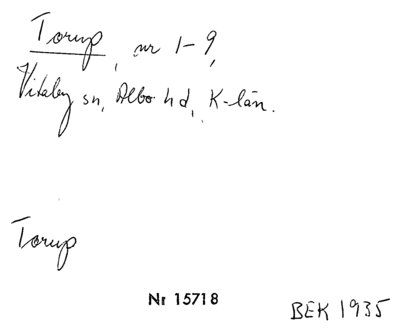 Torup, nr 1-9,
Vitaby sn, Albo hd, K-län.
Torup
Nr 15718
BEK 1935